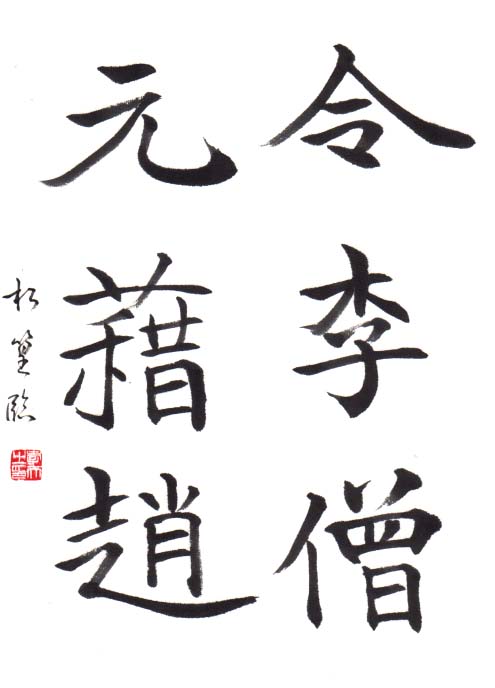 令李僧
元藉趙
松篁臨